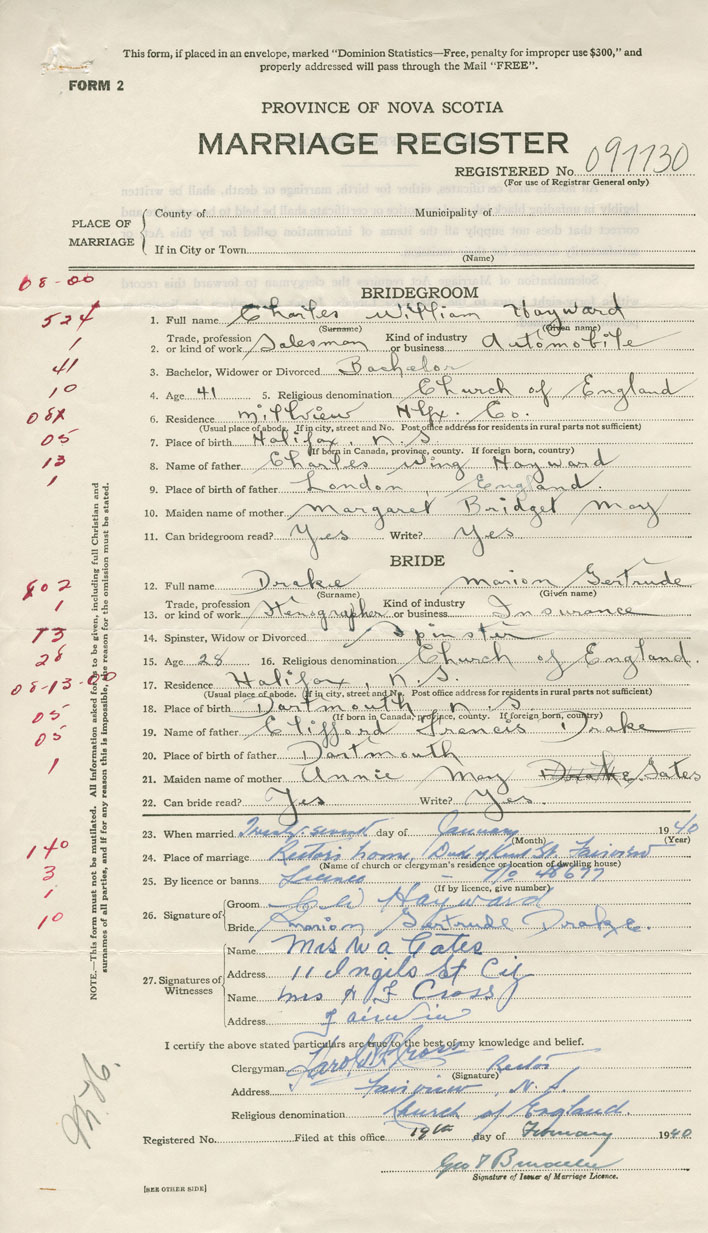 This form, if placed in an envelope, marked "Dominion Statistics—Free, penalty for improper use $300," and
properly addressed will pass through the Mail "FREE".
FORM 2
PROVINCE OF NOVA SCOTIA
MARRIAGE REGISTER
REGISTERED No. 091130
(For use of Registrar General only)
PLACE OF MARRIAGE
County of Municipality of
If in City or Town
(Name)
08-00
BRIDEGROOM
524 1. Full name Charles William Hayward
(Surname) (Given name)
1 2. Trade, profession or kind of work Salesman Kind of industry or business Automobile
41 3. Bachelor, Widower or Divorced Bachelor
10 4. Age 41 5. Religious denomination Church of England
6. Residence Millview Hfx. Co.
(Usual place of abode. If in city, street and No. Post office address for residents in rural parts not sufficient)
05 7. Place of birth Halifax, N.S.
(If born in Canada, province, county. If foreign born, country)
13 8. Name of father Charles Wing Hayward
1 9. Place of birth of father London, England.
10. Maiden name of mother Margaret Bridget May
11. Can bridegroom read? Yes Write? Yes
BRIDE
802 12. Full name Drake Marion Gertrude
(Surname) (Given name)
1 13. Trade, profession or kind of work Stenographer Kind of industry or business Insurance
73 14. Spinster, Widow or Divorced Spinster
28 15. Age 28 16. Religious denomination Church of England.
08-13-00 17. Residence Halifax, N.S.
(Usual place of abode. If in city, street and No. Post office address for residents in rural parts not sufficient)
05 18. Place of birth Dartmouth N.S
(If born in Canada, province, county. If foreign born, country)
05 19. Name of father Clifford Francis Drake
1 20. Place of birth of father Dartmouth
21. Maiden name of mother Annie May Drake Gates
22. Can bride read? Yes Write? Yes.
23. When married Twenty-seventh day of January 1940
(Month) (Year)
140 24. Place of marriage Rector's home, St. Fairview
(Name of church or clergyman's residence or location of dwelling house)
3 25. By licence or banns Licence - No 48677
(If by licence, give number)
1 26. Signature of Groom C W Hayward
10 Bride Marion Gertrude Drake.
27. Signatures of Witnesses
Name Mrs W A Gates
Address 11 Inglis St City
Name Mrs H F Cross
Address Fairview
I certify the above stated particulars are true to the best of my knowledge and belief.
Clergyman Harold F Cross Rector
(Signature)
Address Fairview, N.S.
Religious denomination Church of England.
Registered No. Filed at this office 19th day of February 1940
Geo T
Signature of Issuer of Marriage Licence.
[SEE OTHER SIDE]
NOTE.—This form must not be mutilated. All information asked for is to be given, including full Christian and
surnames of all parties, and if for any reason this is impossible, the reason for the omission must be stated.